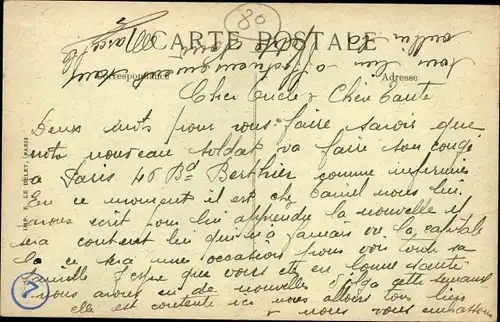 80
CARTE POSTALE
Correspondance
Adresse
Cher Oncle & Chère Tante
Deux mots pour vous faire savoir que
nouveau soldat va faire son
a Paris 46 Bd Berthier comme infirmier
En ce moment il est chez nous lui
avons écrit pour lui apprendre la nouvelle il
sera content lui qui n'a jamais vu la capitale
la ce sera une occasion pour voir toute sa
famille J'espère que vous êtes en bonne santé
nous avons eu de nouvelles d'Olga cette semaine
elle est contente ici nous allons tous bien
nous vous embrassons
IMP. E. LE DELEY, PARIS
7